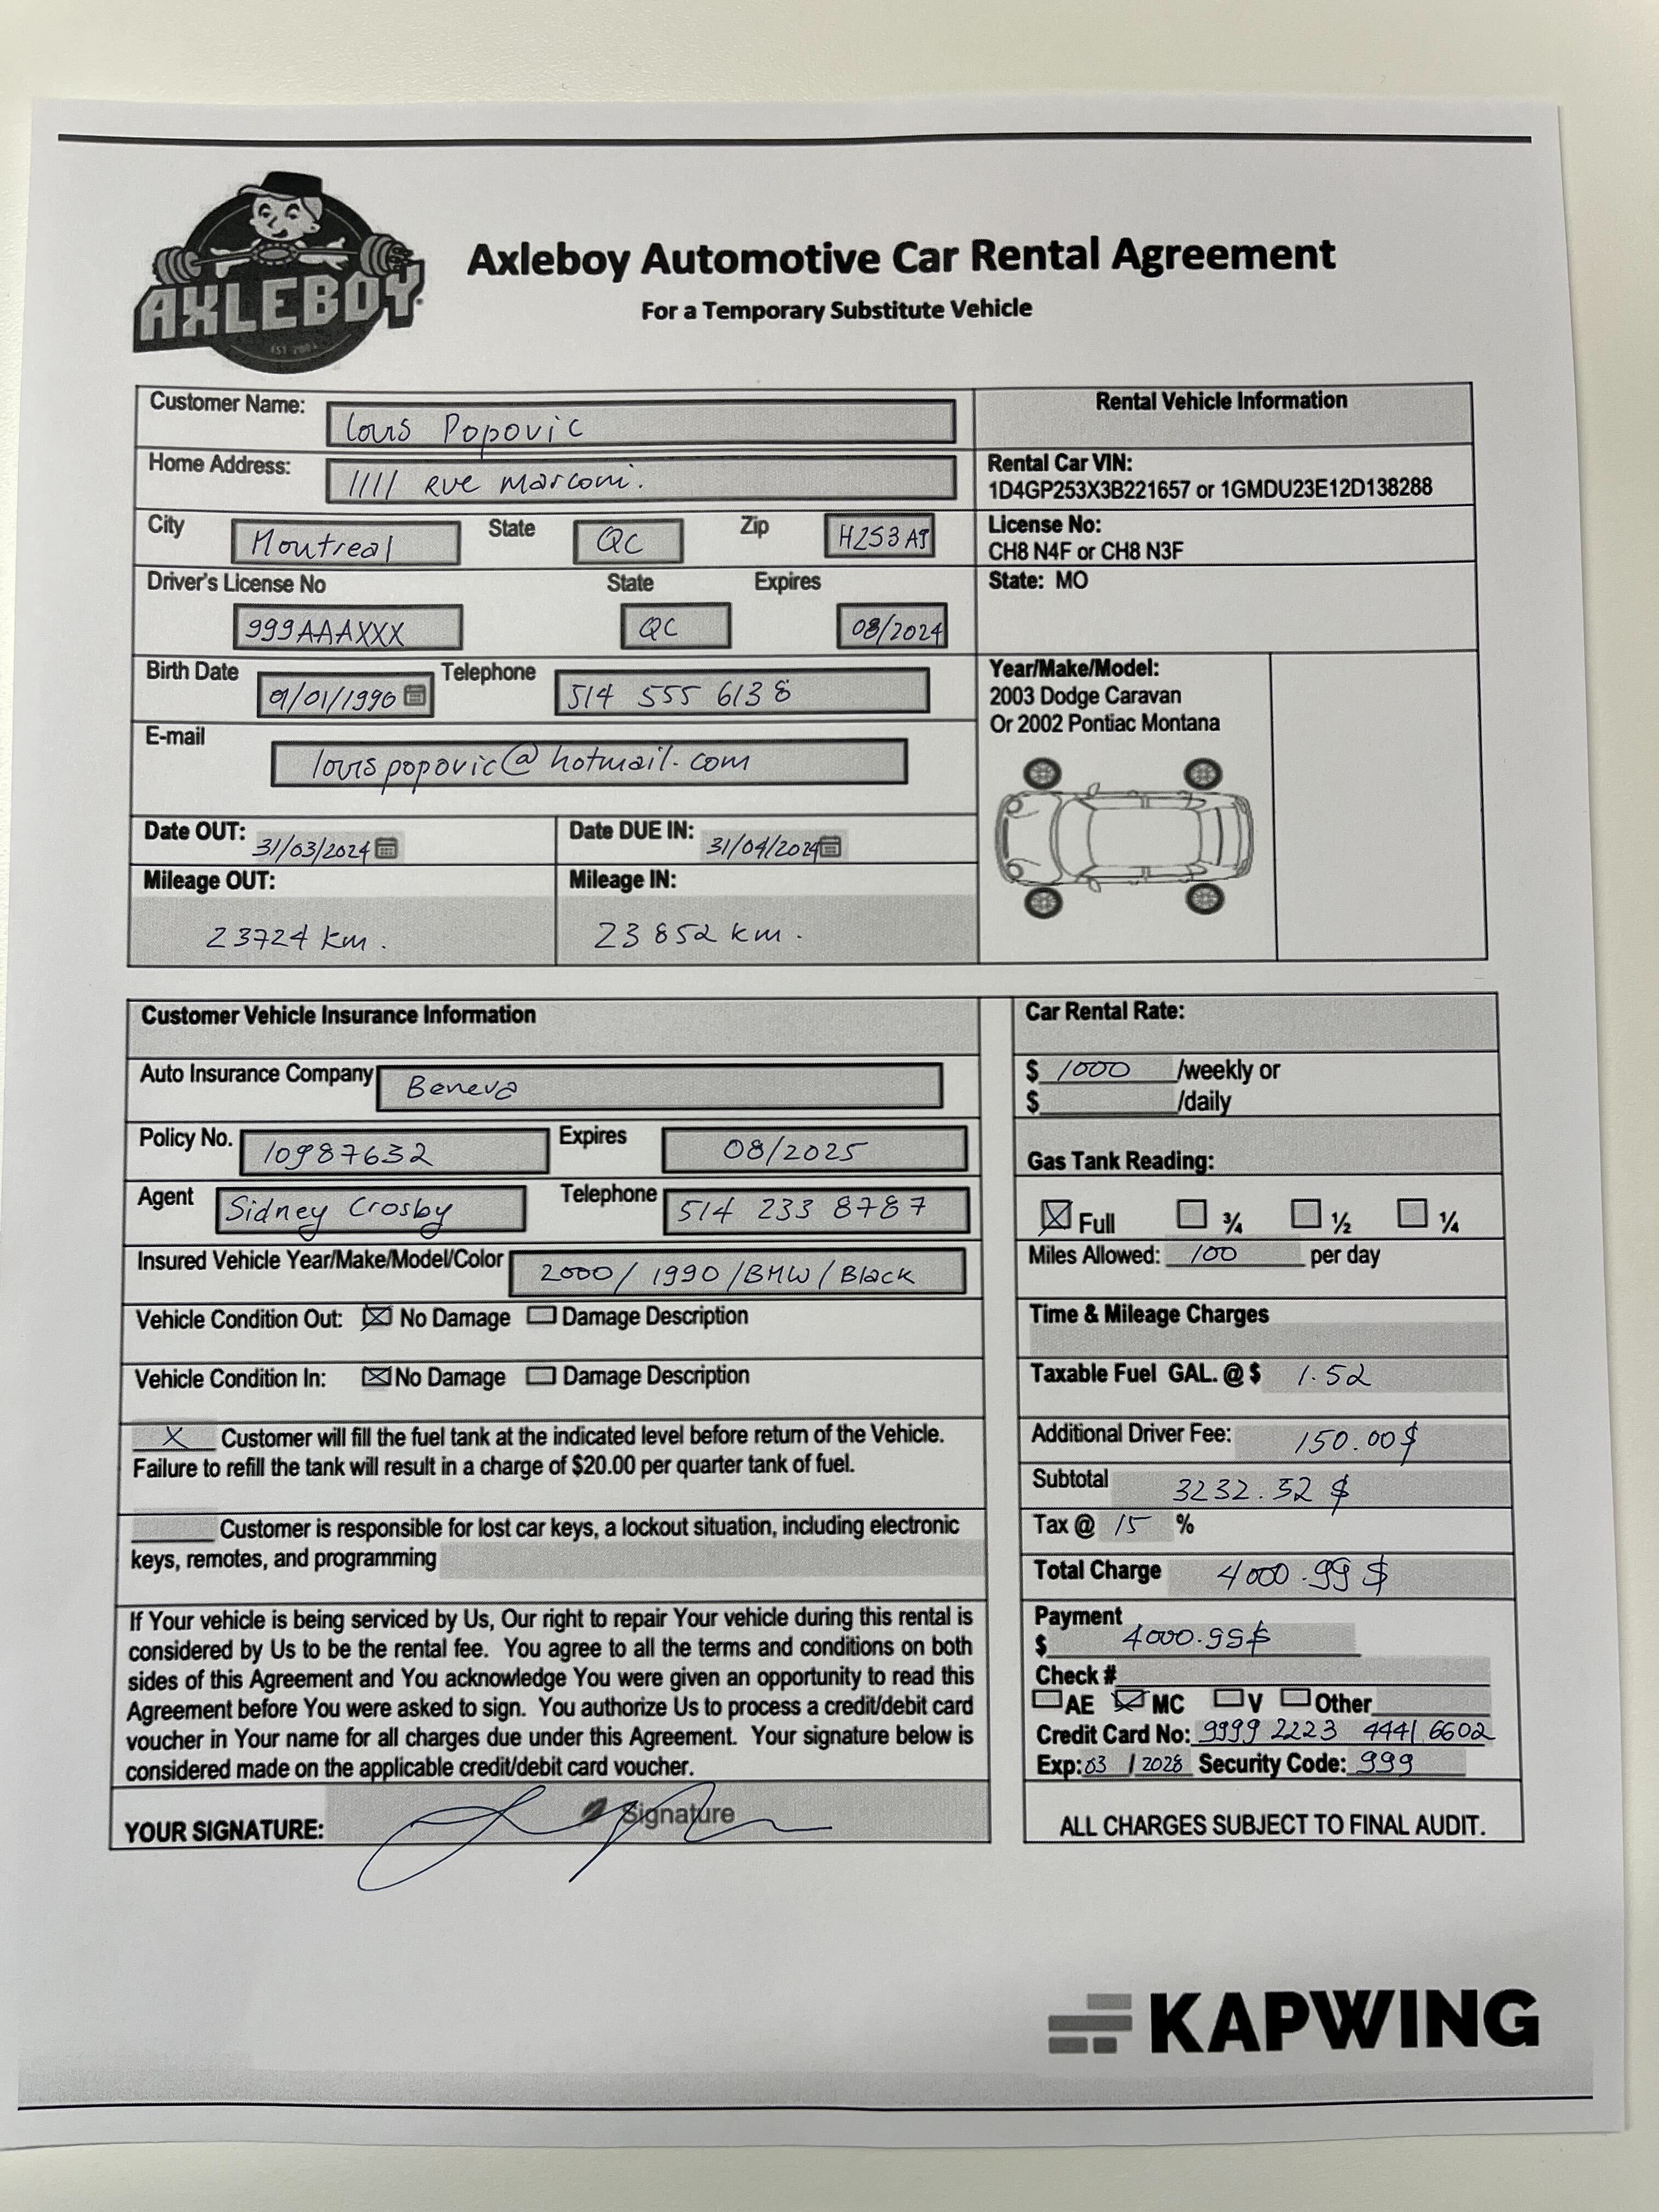 AXLEBOY
EST 2004
Axleboy Automotive Car Rental Agreement
For a Temporary Substitute Vehicle
Customer Name: Louis Popovic
Home Address: 1111 Rue Marconi.
City Montreal State QC Zip H2S3A9
Driver's License No State Expires
999AAAXXX QC 08/2024
Birth Date 01/01/1990 Telephone 514 555 6138
E-mail
louispopovic@hotmail.com
Date OUT: 31/03/2024 Date DUE IN: 31/04/2024
Mileage OUT: Mileage IN:
23724 km. 23852 km.
Rental Vehicle Information
Rental Car VIN:
1D4GP253X3B221657 or 1GMDU23E12D138288
License No:
CH8 N4F or CH8 N3F
State: MO
Year/Make/Model:
2003 Dodge Caravan
Or 2002 Pontiac Montana
Customer Vehicle Insurance Information
Auto Insurance Company Beneva
Policy No. 10987632 Expires 08/2025
Agent Sidney Crosby Telephone 514 233 8787
Insured Vehicle Year/Make/Model/Color 2000/1990/BMW/Black
Vehicle Condition Out: No Damage Damage Description
Vehicle Condition In: No Damage Damage Description
X Customer will fill the fuel tank at the indicated level before return of the Vehicle.
Failure to refill the tank will result in a charge of $20.00 per quarter tank of fuel.
Customer is responsible for lost car keys, a lockout situation, including electronic
keys, remotes, and programming
If Your vehicle is being serviced by Us, Our right to repair Your vehicle during this rental is
considered by Us to be the rental fee. You agree to all the terms and conditions on both
sides of this Agreement and You acknowledge You were given an opportunity to read this
Agreement before You were asked to sign. You authorize Us to process a credit/debit card
voucher in Your name for all charges due under this Agreement. Your signature below is
considered made on the applicable credit/debit card voucher.
YOUR SIGNATURE: Signature
Car Rental Rate:
$ 1000 /weekly or
$ /daily
Gas Tank Reading:
Full ¾ ½ ¼
Miles Allowed: 100 per day
Time & Mileage Charges
Taxable Fuel GAL. @ $ 1.52
Additional Driver Fee: 150.00$
Subtotal 3232.52 $
Tax @ 15 %
Total Charge 4000.99 $
Payment
$ 4000.99$
Check #
AE MC V Other
Credit Card No: 9999 2223 4441 6602
Exp: 03 / 2028 Security Code: 999
ALL CHARGES SUBJECT TO FINAL AUDIT.
KAPWING